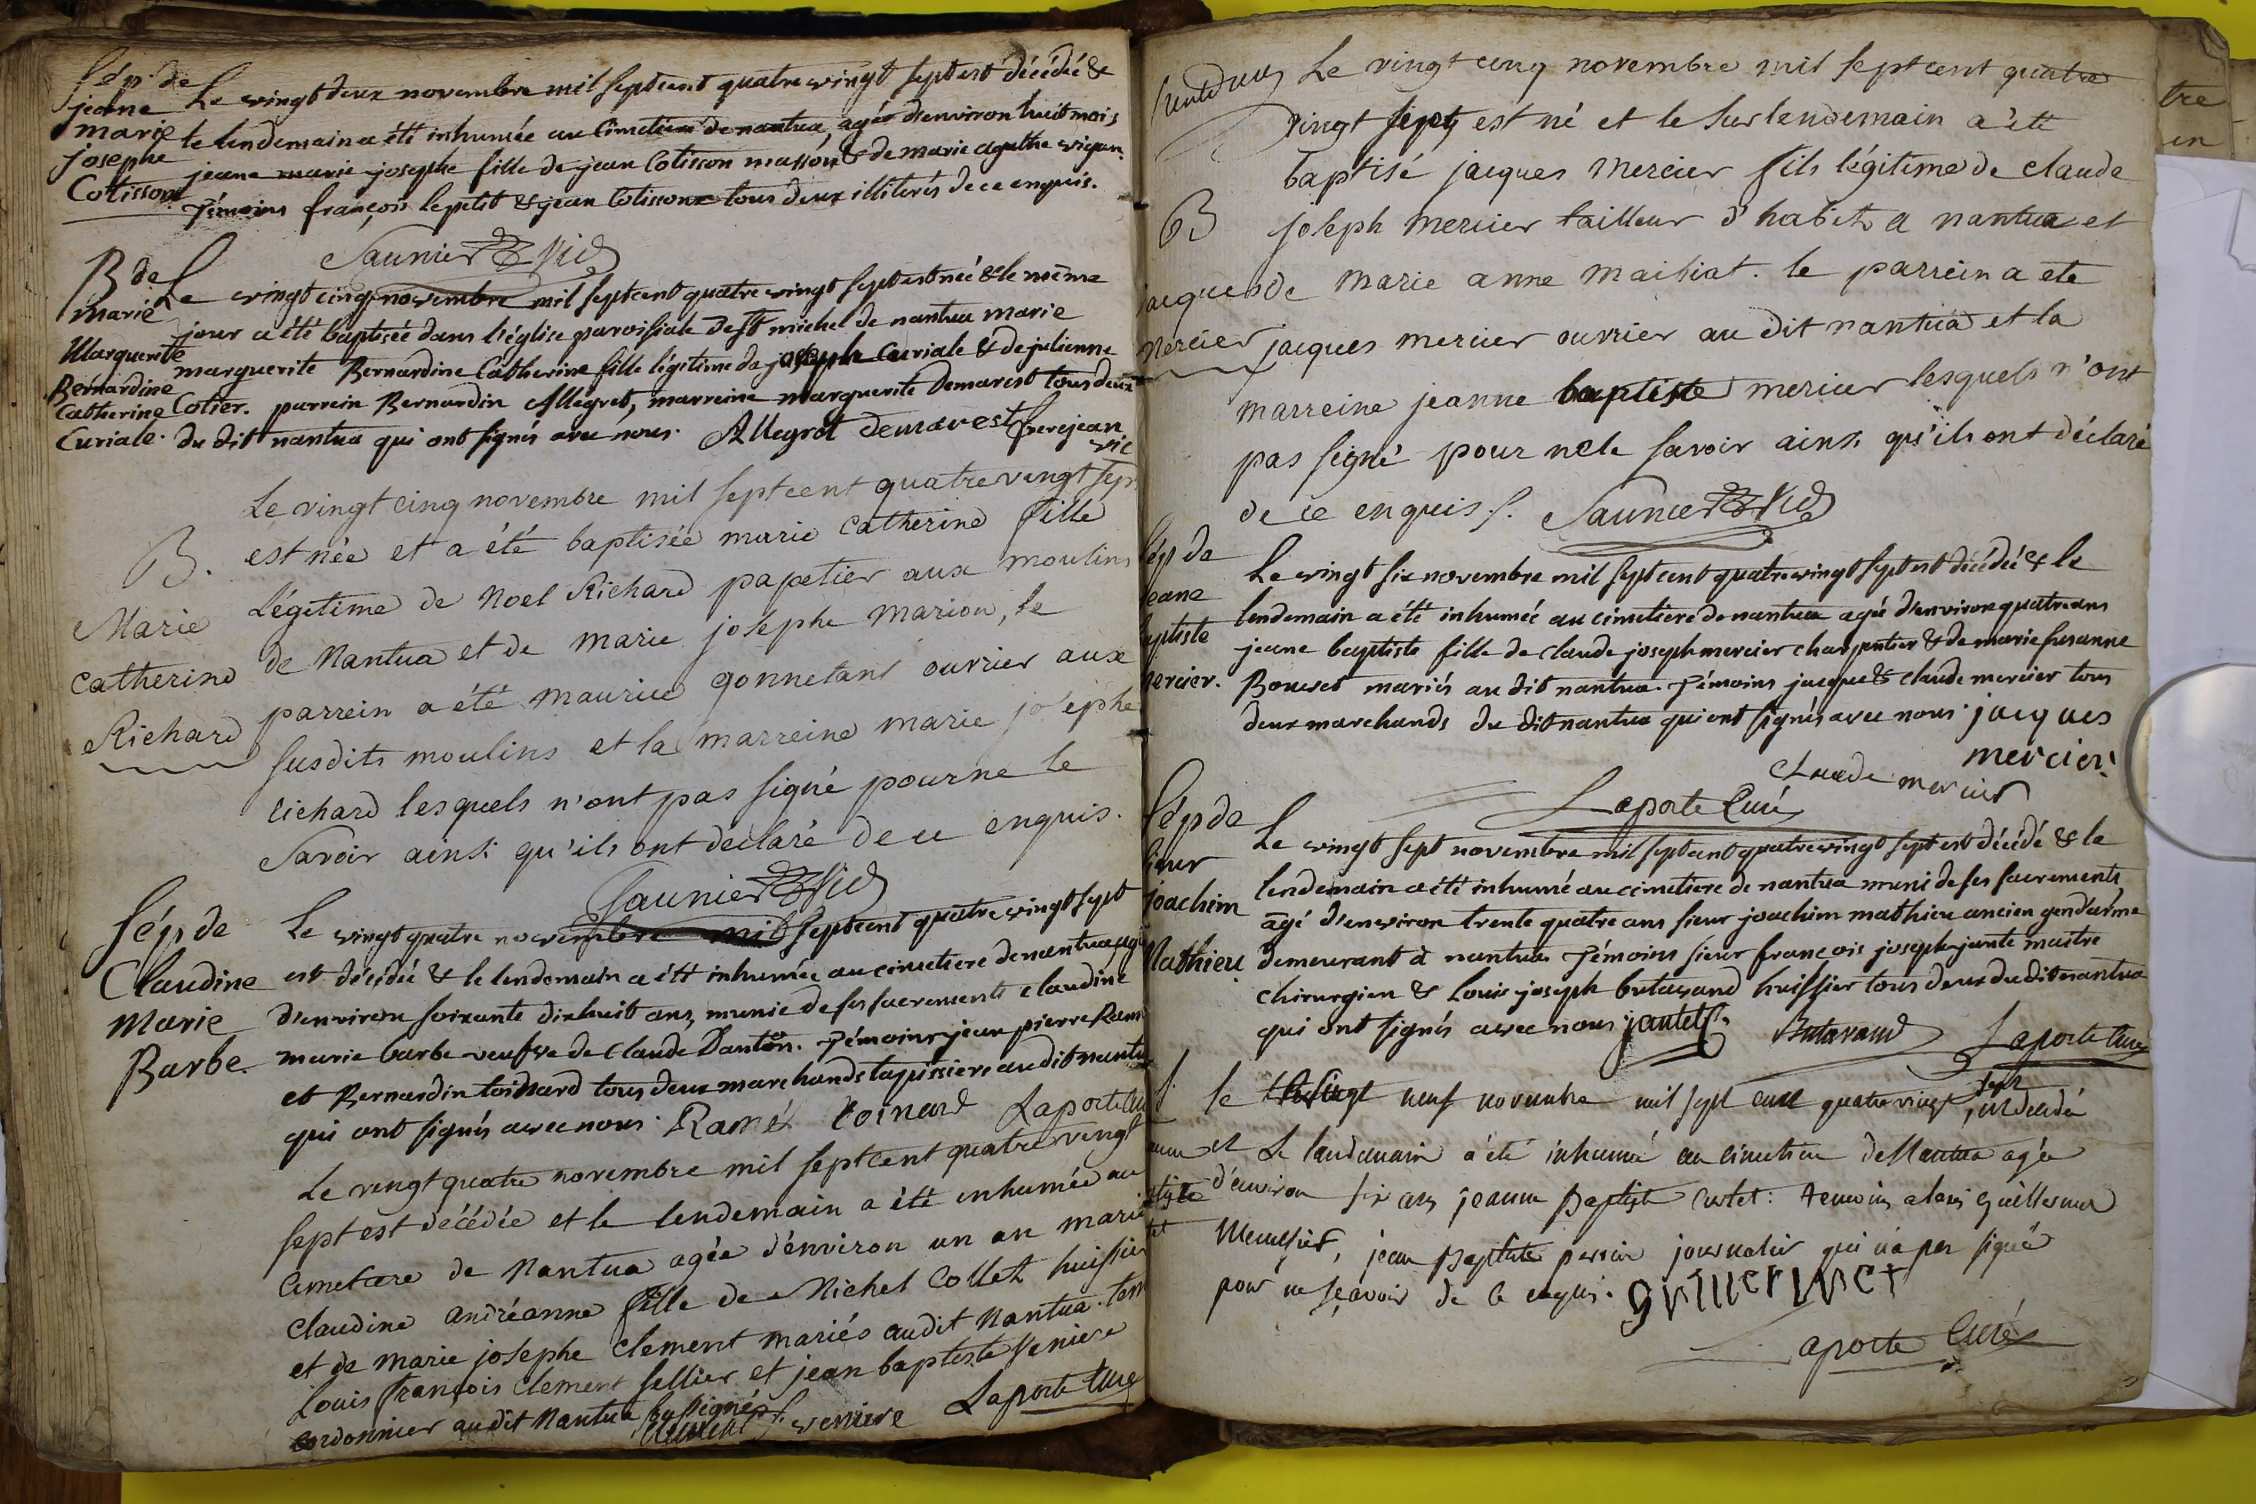 Sép. de
jeane
marie
josephe
Cotisson
Le vingt deux novembre mil sept cent quatre vingt sept est décédée &
le lendemain a été inhumée au cimetiere de nantua, agée d'environ huit mois
jeane marie josephe fille de jean Cotisson masson & de marie agathe
Témoins françois lepetit & jean Cotisson tous deux illiterés de ce enquis.
Saunier Vic
B de
Marie
Marguerite
Bernardine
Catherine
Curiale.
Le vingt cinq novembre mil sept cent quatre vingt sept est née & le même
jour a été baptisée dans l'église paroissiale de St michel de nantua marie
marguerite Bernardine Catherine fille légitime de joseph Curiale & de julienne
Cotier. parrein Bernardin Allegret, marreine marguerite Demarest tous deux
du dit nantua qui ont signés avec nous. Allegret demarest frerejean
vic
B.
Marie
Catherine
Richard
Le vingt cinq novembre mil sept cent quatre vingt sept
est née et a été baptisée marie catherine fille
Légitime de Noel Richard papetier aux moulins
de Nantua et de marie josephe Marion, le
parrein a été maurice gonnetant ouvrier aux
susdits moulins et la marreine marie josephe
richard lesquels n'ont pas signé pour ne le
savoir ainsi qu'ils ont déclaré de ce enquis.
Saunier Vic
Sép de
Claudine
Marie
Barbe.
Le vingt quatre novembre mil sept cent quatre vingt sept
est décédée & le lendemain a été inhumée au cimetiere de nantua, agé
d'environ soixante dix huit ans, munie de ses sacrements claudine
marie barbe veufve de claude Danton. Témoins jean pierre Ram
et Bernardin toinard tous deux marchands tapissiers audit nantu
qui ont signés avec nous. Ramel toinard Laporte Curé
Le vingt quatre novembre mil sept cent quatre vingt
sept est décédée et le lendemain a été inhumée au
cimetiere de Nantua agée d'environ un an marie
claudine andréanne fille de Michel Collet huissier
et de marie josephe clement mariés audit Nantua. tem
Louis françois clement sellier et jean baptiste Veniere
cordonnier audit Nantua soussignés
clement veniere Laporte Curé
B
jacques
Mercier
Le vingt cinq novembre mil sept cent quatre
vingt sept est né et le surlendemain a été
baptisé jacques Mercier fils légitime de claude
joseph Mercier tailleur d'habits a nantua et
de Marie anne Maissiat. le parrein a été
jacques mercier ouvrier au dit nantua et la
marreine jeanne baptiste mercier lesquels n'ont
pas signé pour ne le savoir ainsi qu'ils ont déclaré
de ce enquis. Saunier Vic
Sép de
jeane
baptiste
mercier.
Le vingt six novembre mil sept cent quatre vingt sept est décédée & le
lendemain a été inhumée au cimetiere de nantua agée d'environ quatre ans
jeane baptiste fille de claude joseph mercier charpentier & de marie susanne
Bouvet mariés au dit nantua. Témoins jacque & claude mercier tous
deux marchands du dit nantua qui ont signés avec nous. jacques
mercier
Claude mercier
Laporte Curé
Sép de
sieur
joachim
Mathieu
Le vingt sept novembre mil sept cent quatre vingt sept est décédé & le
lendemain a été inhumé au cimetiere de nantua muni de ses sacrements
agé d'environ trente quatre ans sieur joachim mathieu ancien gendarme
demeurant à nantua. Témoins sieur françois joseph jantet maitre
chirurgien & Louis joseph butavand huissier tous deux du dit nantua
qui ont signés avec nous. jantet Butavand Laporte Curé
le vingt neuf novembre mil sept cent quatre vingt sept, est decedée
et Le landemain a été inhumé au cimetiere de Nantua agée
d'environ six ans jeanne Baptiste temoins alexis guillermet
Menusier, jean Baptiste perrin journalier qui n'a pas signé
pour ne sçavoir de ce enquis. guillermet
Laporte Curé